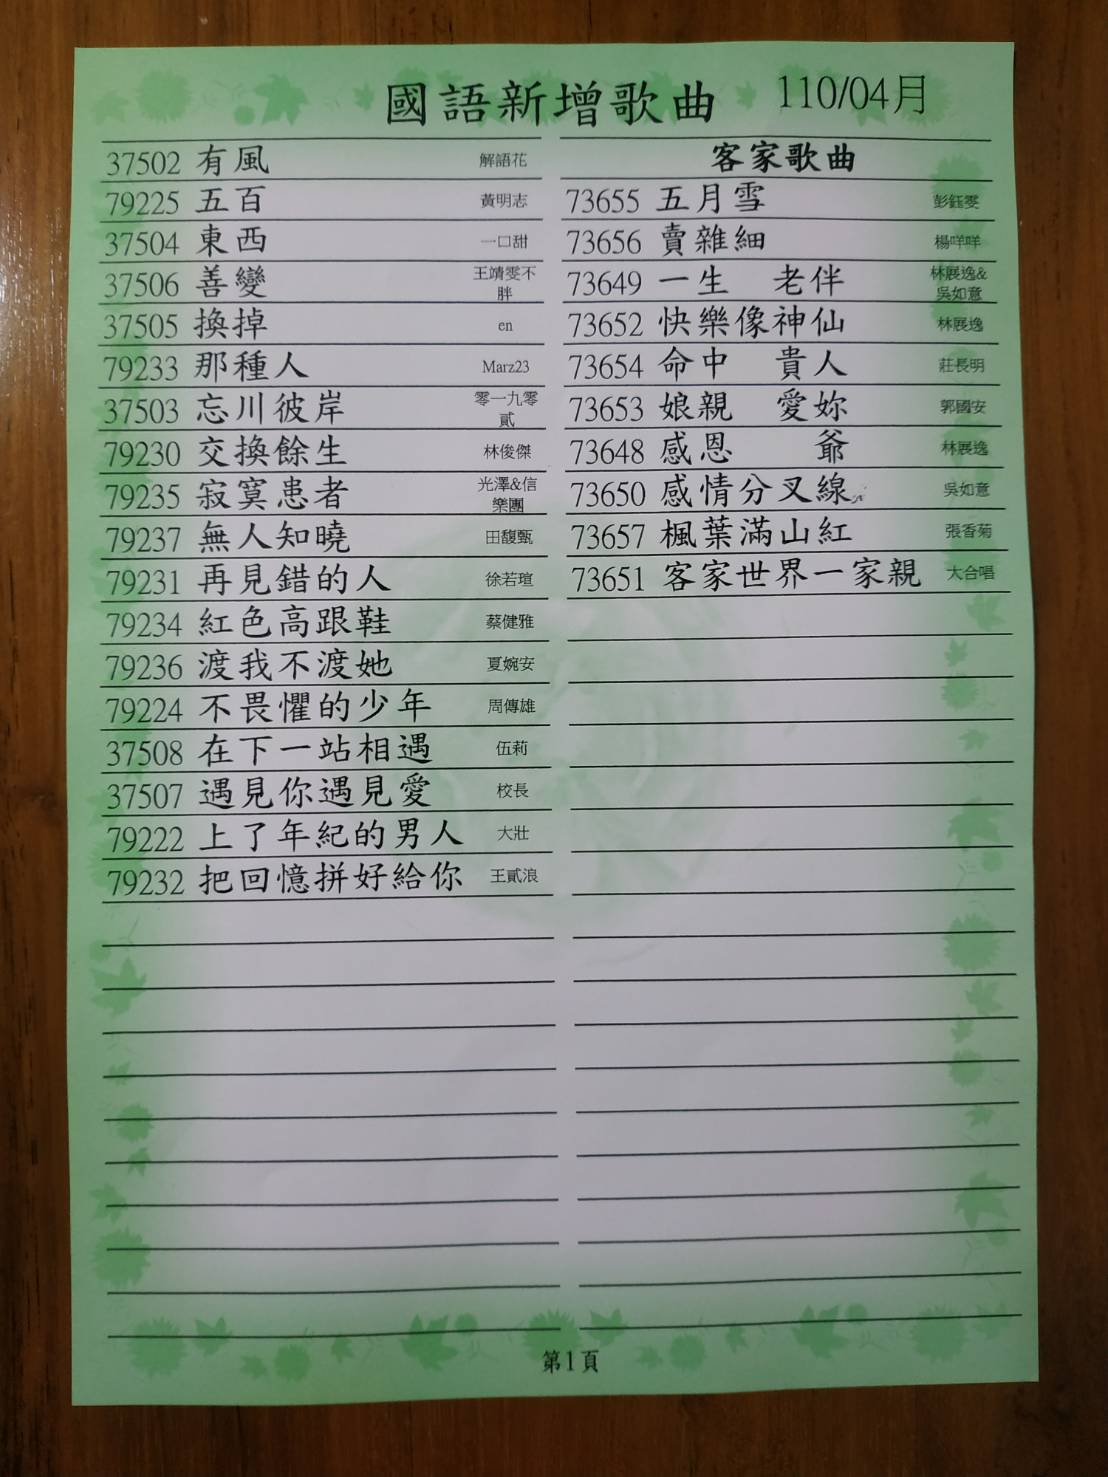 國語新增歌曲 110/04月
37502 有風 解語花
79225 五百 黃明志
37504 東西 一口甜
37506 善變 王靖雯不胖
37505 換掉 en
79233 那種人 Marz23
37503 忘川彼岸 零一九零貳
79230 交換餘生 林俊傑
79235 寂寞患者 光澤&信樂團
79237 無人知曉 田馥甄
79231 再見錯的人 徐若瑄
79234 紅色高跟鞋 蔡健雅
79236 渡我不渡她 夏婉安
79224 不畏懼的少年 周傳雄
37508 在下一站相遇 伍莉
37507 遇見你遇見愛 校長
79222 上了年紀的男人 大壯
79232 把回憶拼好給你 王貳浪
客家歌曲
73655 五月雪 彭鈺雯
73656 賣雜細 楊咩咩
73649 一生 老伴 林展逸&吳如意
73652 快樂像神仙 林展逸
73654 命中 貴人 莊長明
73653 娘親 愛妳 郭國安
73648 感恩 爺 林展逸
73650 感情分叉線 吳如意
73657 楓葉滿山紅 張香菊
73651 客家世界一家親 大合唱
第1頁